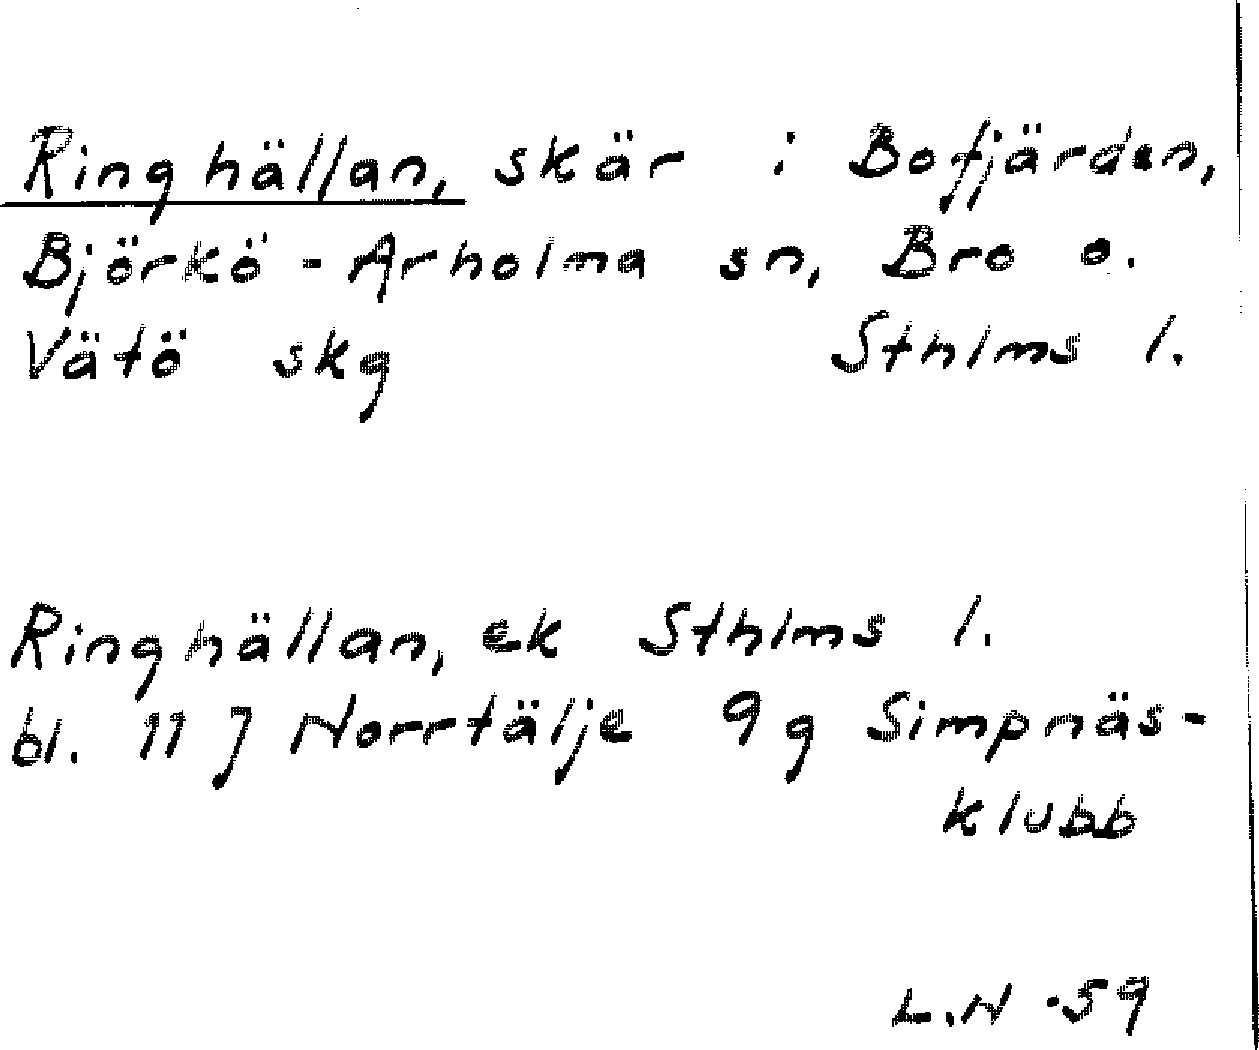 Ringhällan, skär i Bofjärden,
Björkö-Arholma sn, Bro o.
Vätö skg Sthlms l.
Ringhällan, ek Sthlms l.
bl. 11 J Norrtälje 9g Simpnäs-
klubb
L.N -59